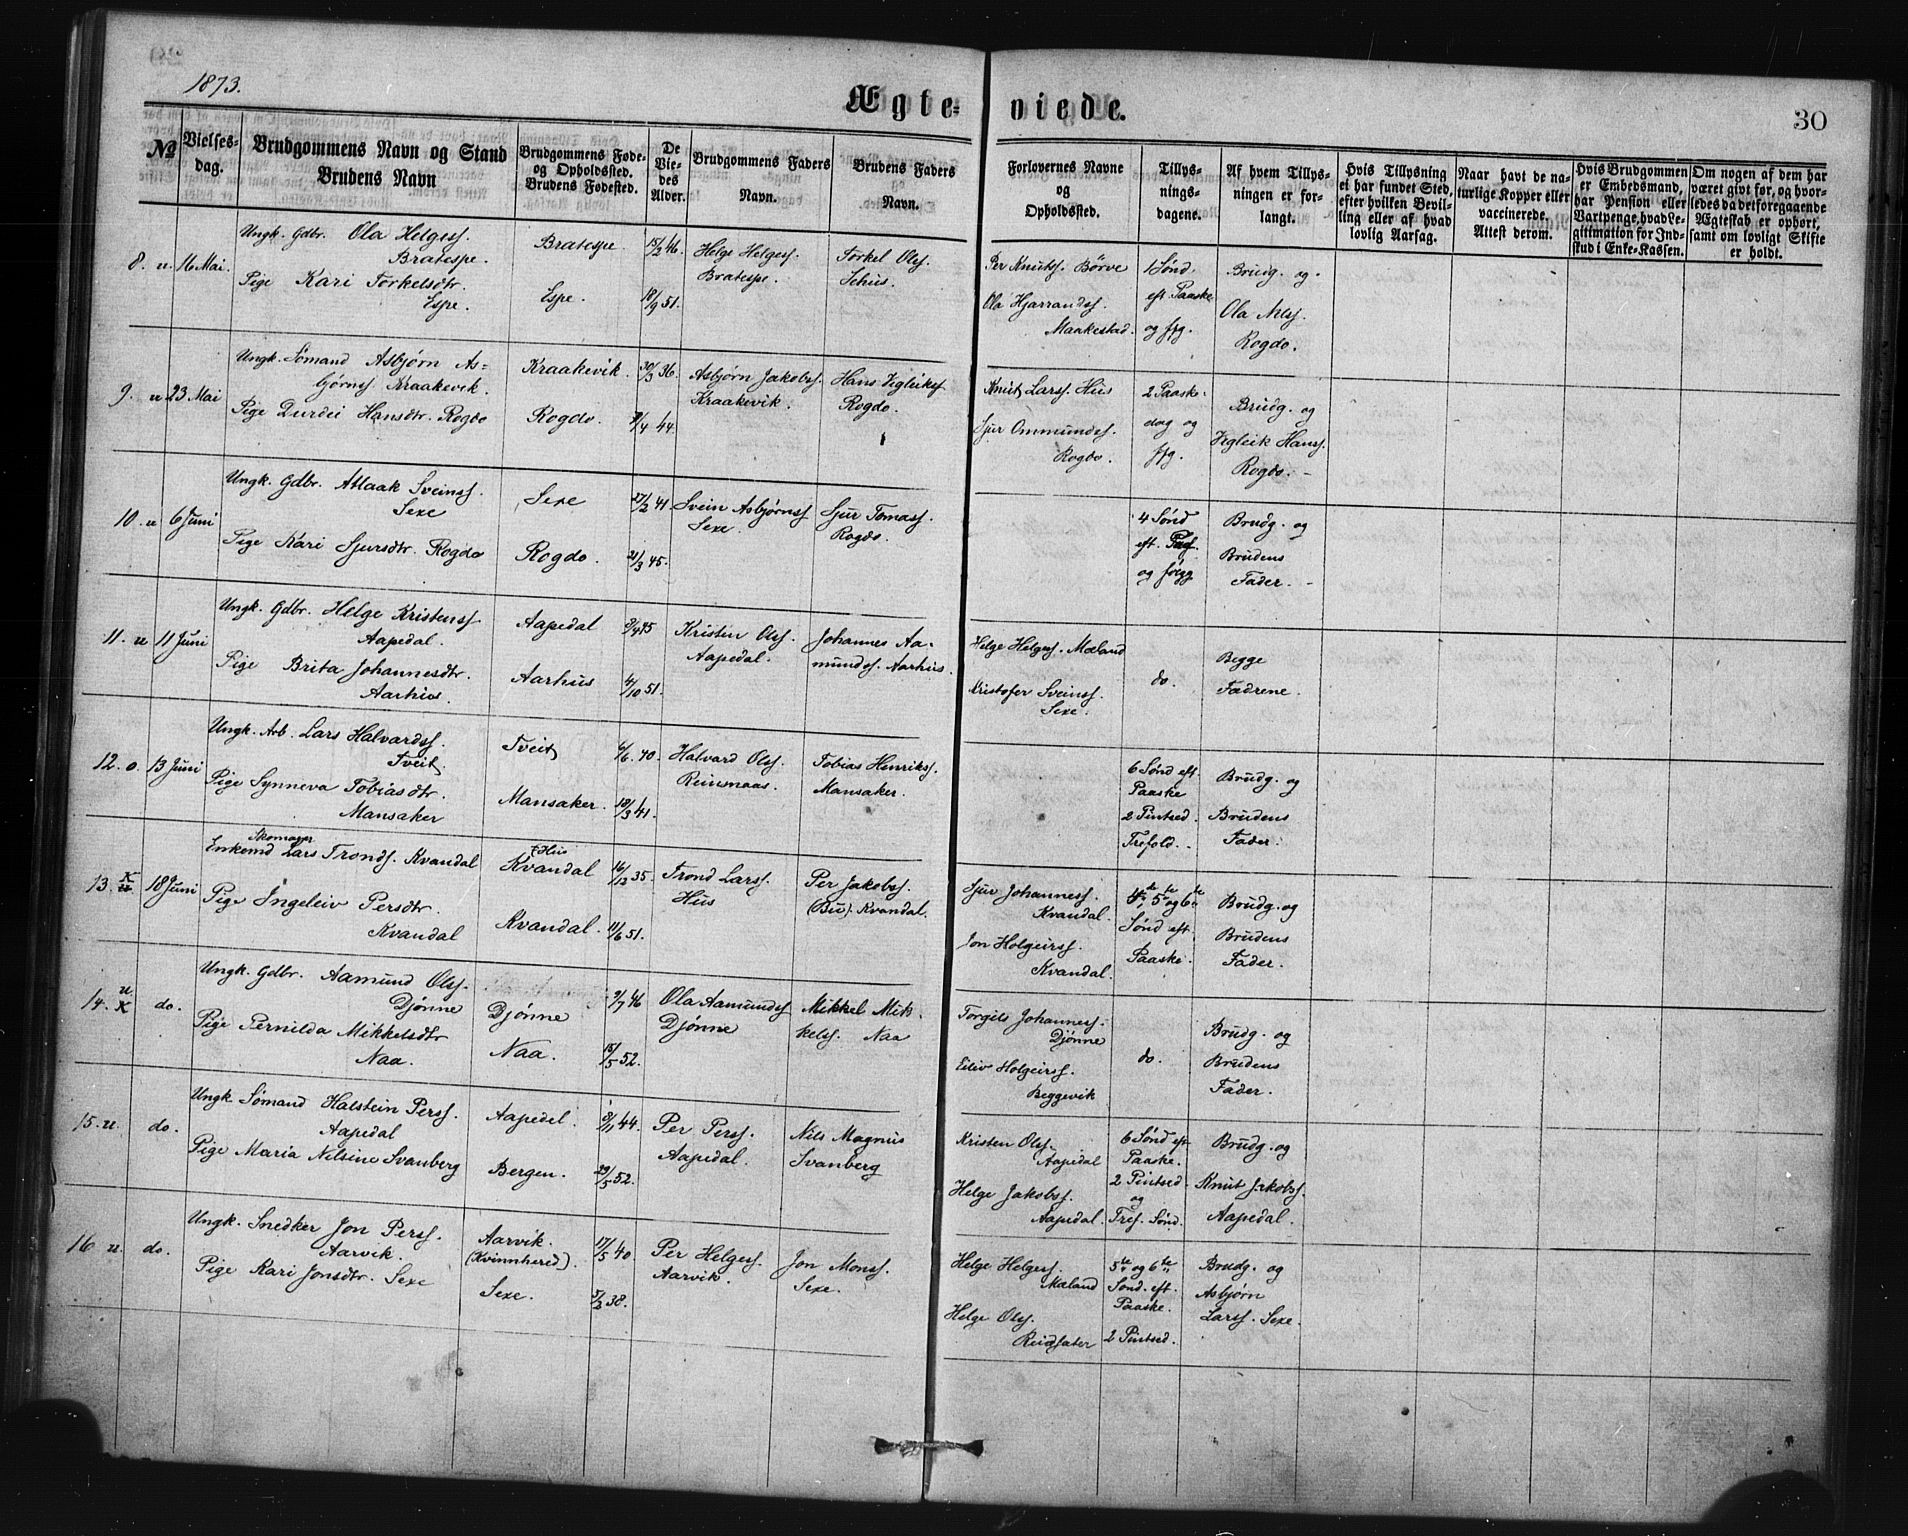 1873.
Ægte-
viede.
30
№
Vielses-
dag.
Brudgommens Navn og Stand
Brudens Navn
Brudgommens Føde-
og Opholdssted.
Brudens Fødested.
De
Vie-
des
Alder.
Brudgommens Faders
Navn.
Brudens Faders
og
Navn.
Forlovernes Navne
og
Opholdssted.
Tillys-
nings-
dagene.
Af hvem Tillys-
ningen er for-
langt.
Hvis Tillysning
ei har fundet Sted,
efter hvilken Bevil-
ling eller af hvad
lovlig Aarsag.
Naar havt de na-
turlige Kopper eller
vaccinerede.
Attest derom.
Hvis Brudgommen
er Embedsmand,
har Pension eller
Vartpenge, hvad Le-
gitimation for Ind-
skud i Enke-Kassen.
Om nogen af dem har
været givt før, og hvor-
ledes da det foregaaende
Ægteskab er ophørt,
samt om lovligt Skifte
er holdt.
8. u. 16 Mai.
Ungk. Gdbr. Ola Helgess.
Bratespe.
Pige Kari Torkelsdtr.
Espe.
Bratespe.
Espe.
15/2 46.
18/9 51.
Helge Helgess.
Bratespe.
Torkel Ols.
Per Knutss. Børve
Ola Hjarrandss.
Maakestad.
1 Sønd.
eft. Paaske
og ffg.
Brudg. og
Ola
Rogdo.
9. u 23 Mai
Ungk. Sømand Asbjørn As-
bjørnss. Kraakevik.
Pige Durdei Hansdtr. Rogdo
Kraakevik.
Rogdo.
30/3 36.
/4 44.
Asbjørn Jakobss.
Kraakevik.
Hans Vigleikss.
Rogdo.
Knut Larss. Hus
Sjur Ommundss.
Rogdo.
2 Paaske-
dag og
ffg.
Brudg. og
Vigleik Hanss.
Rogdo.
10. u 6 Juni
Ungk. Gdbr. Aslaak Sveinss.
Sexe
Pige Kari Sjursdtr. Rogdo
Sexe
Rogdo.
27/2 41.
21/3 45.
Svein Asbjørnss
Sexe.
Sjur Tomass.
Rogdo.
4 Sønd
eft.
og følgg
Brudg. og
Brudens
Fader.
11. u 11 Juni
Ungk. Gdbr. Helge Kristenss
Aapedal.
Pige Brita Johannesdtr.
Aarhus.
Aapedal
Aarhus
9/9 45
4/10 51.
Kristen Olss.
Aapedal.
Johannes Aa-
mundss. Aarhus.
Helge Helgess. Mæland
Kristofer Sveinss.
Sexe.
do.
Begge
Fædrene.
12. o. 13 Juni
Ungk. Arb. Lars Halvardss.
Tveit
Pige Synneva Tobiasdtr.
Mansaker
Tveit
Mansaker.
/6 40.
18/3 41.
Halvard Olss.
Reinsnaas.
Tobias Henrikss.
Mansaker.
6 Sønd eft.
Paaske
2 Pintsed.
Trefold.
Brudg. og
Brudens
Fader.
13. K u 18 Juni
Skomager
Enkemd Lars Tronds. Kvandal
Pige Ingeleiv Persdtr.
Kvandal
Hus
Kvandal
Kvandal.
16/12 35.
11/6 51.
Trond Larss.
Hus
Per Jakobss.
(Bu). Kvandal.
Sjur Johanness.
Kvandal.
Jon Holgeirss.
Kvandal.
4de, 5te og 6te
Sønd eft.
Paaske.
Brudg. og
Brudens
Fader.
14. u K do.
Ungk. Gdbr. Aamund Olss.
Djønne
Pige Pernilda Mikkelsdtr
Naa.
Djønne
Naa.
9/7 46
15/5 52.
Ola Aamundss
Djønne
Mikkel Mik-
kelss. Naa
Torgils Johanness.
Djønne
Eiliv Holgeirss.
Beggevik
do.
Brudg. og
Brudens
Fader.
15. u. do.
Ungk Sømand Halstein Perss.
Aapedal
Pige Maria Nilsine Svanberg
Aapedel.
Bergen.
9/11 44.
29/5 52.
Per Perss.
Aapedal.
Nils Magnus
Svanberg
Kristen Olss.
Aapedal
Helge Jakobss.
Aapedal.
6 Sønd eft
Paaske.
2 Pintsed.
og
Tref. Sønd.
Brudg. og
Knut Jakobss.
Aapedal.
16 u. do.
Ungk. Snedker Jon Perss.
Aarvik.
Pige Kari Jonsdtr. Sexe
Aarvik.
(Kvinnhered).
Sexe.
17/5 40
5/2 38.
Per Helgess.
Aarvik.
Jon Monss.
Sexe.
Helge Helgess.
Mæland
Helge Olss.
Reisæter
5te og 6te
Sønd. eft.
Paaske.
2 Pintsed.
Brudg. og
Asbjørn
Larss. Sexe.